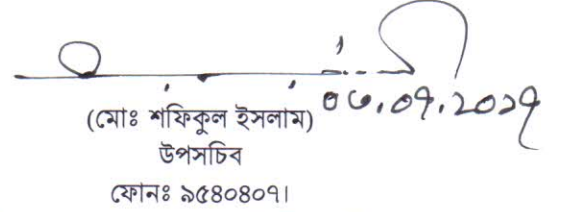 ০৩.০৭.২০১৭
(মোঃ শফিকুল ইসলাম)
উপসচিব
ফোনঃ ৯৫৪০৪০৭।